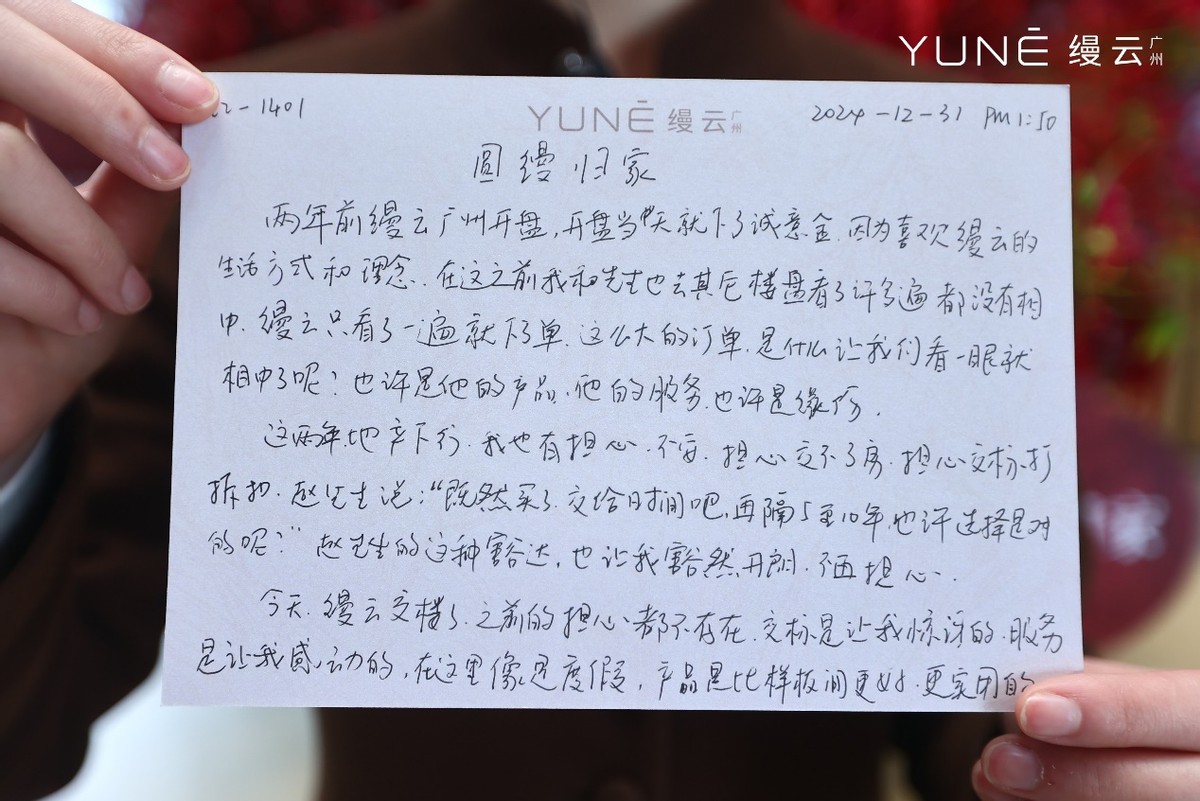 YUNÉ 缦云 广州
22-1401
YUNÉ 缦云 广州
2024-12-31 PM 1:50
圆缦归家
两年前缦云广州开盘,开盘当天就下了诚意金.因为喜欢缦云的
生活方式和理念.在这之前我和先生也去其它楼盘看了许多遍都没有相
中.缦云只看了一遍就下了单.这么大的订单.是什么让我们看一眼就
相中了呢?也许是他的产品.他的服务.也许是缘份.
这两年地产下行.我也有担心.不安.担心交不了房.担心交标打
折扣.赵先生说:“既然买了.交给时间吧,再隔5至10年,也许选择是对
的呢?”赵先生的这种豁达,也让我豁然开朗.不再担心.
今天.缦云交楼了.之前的担心都不存在.交标是让我惊讶的.服务
是让我感动的,在这里像是度假,产品是比样板间更好.更实用的
家